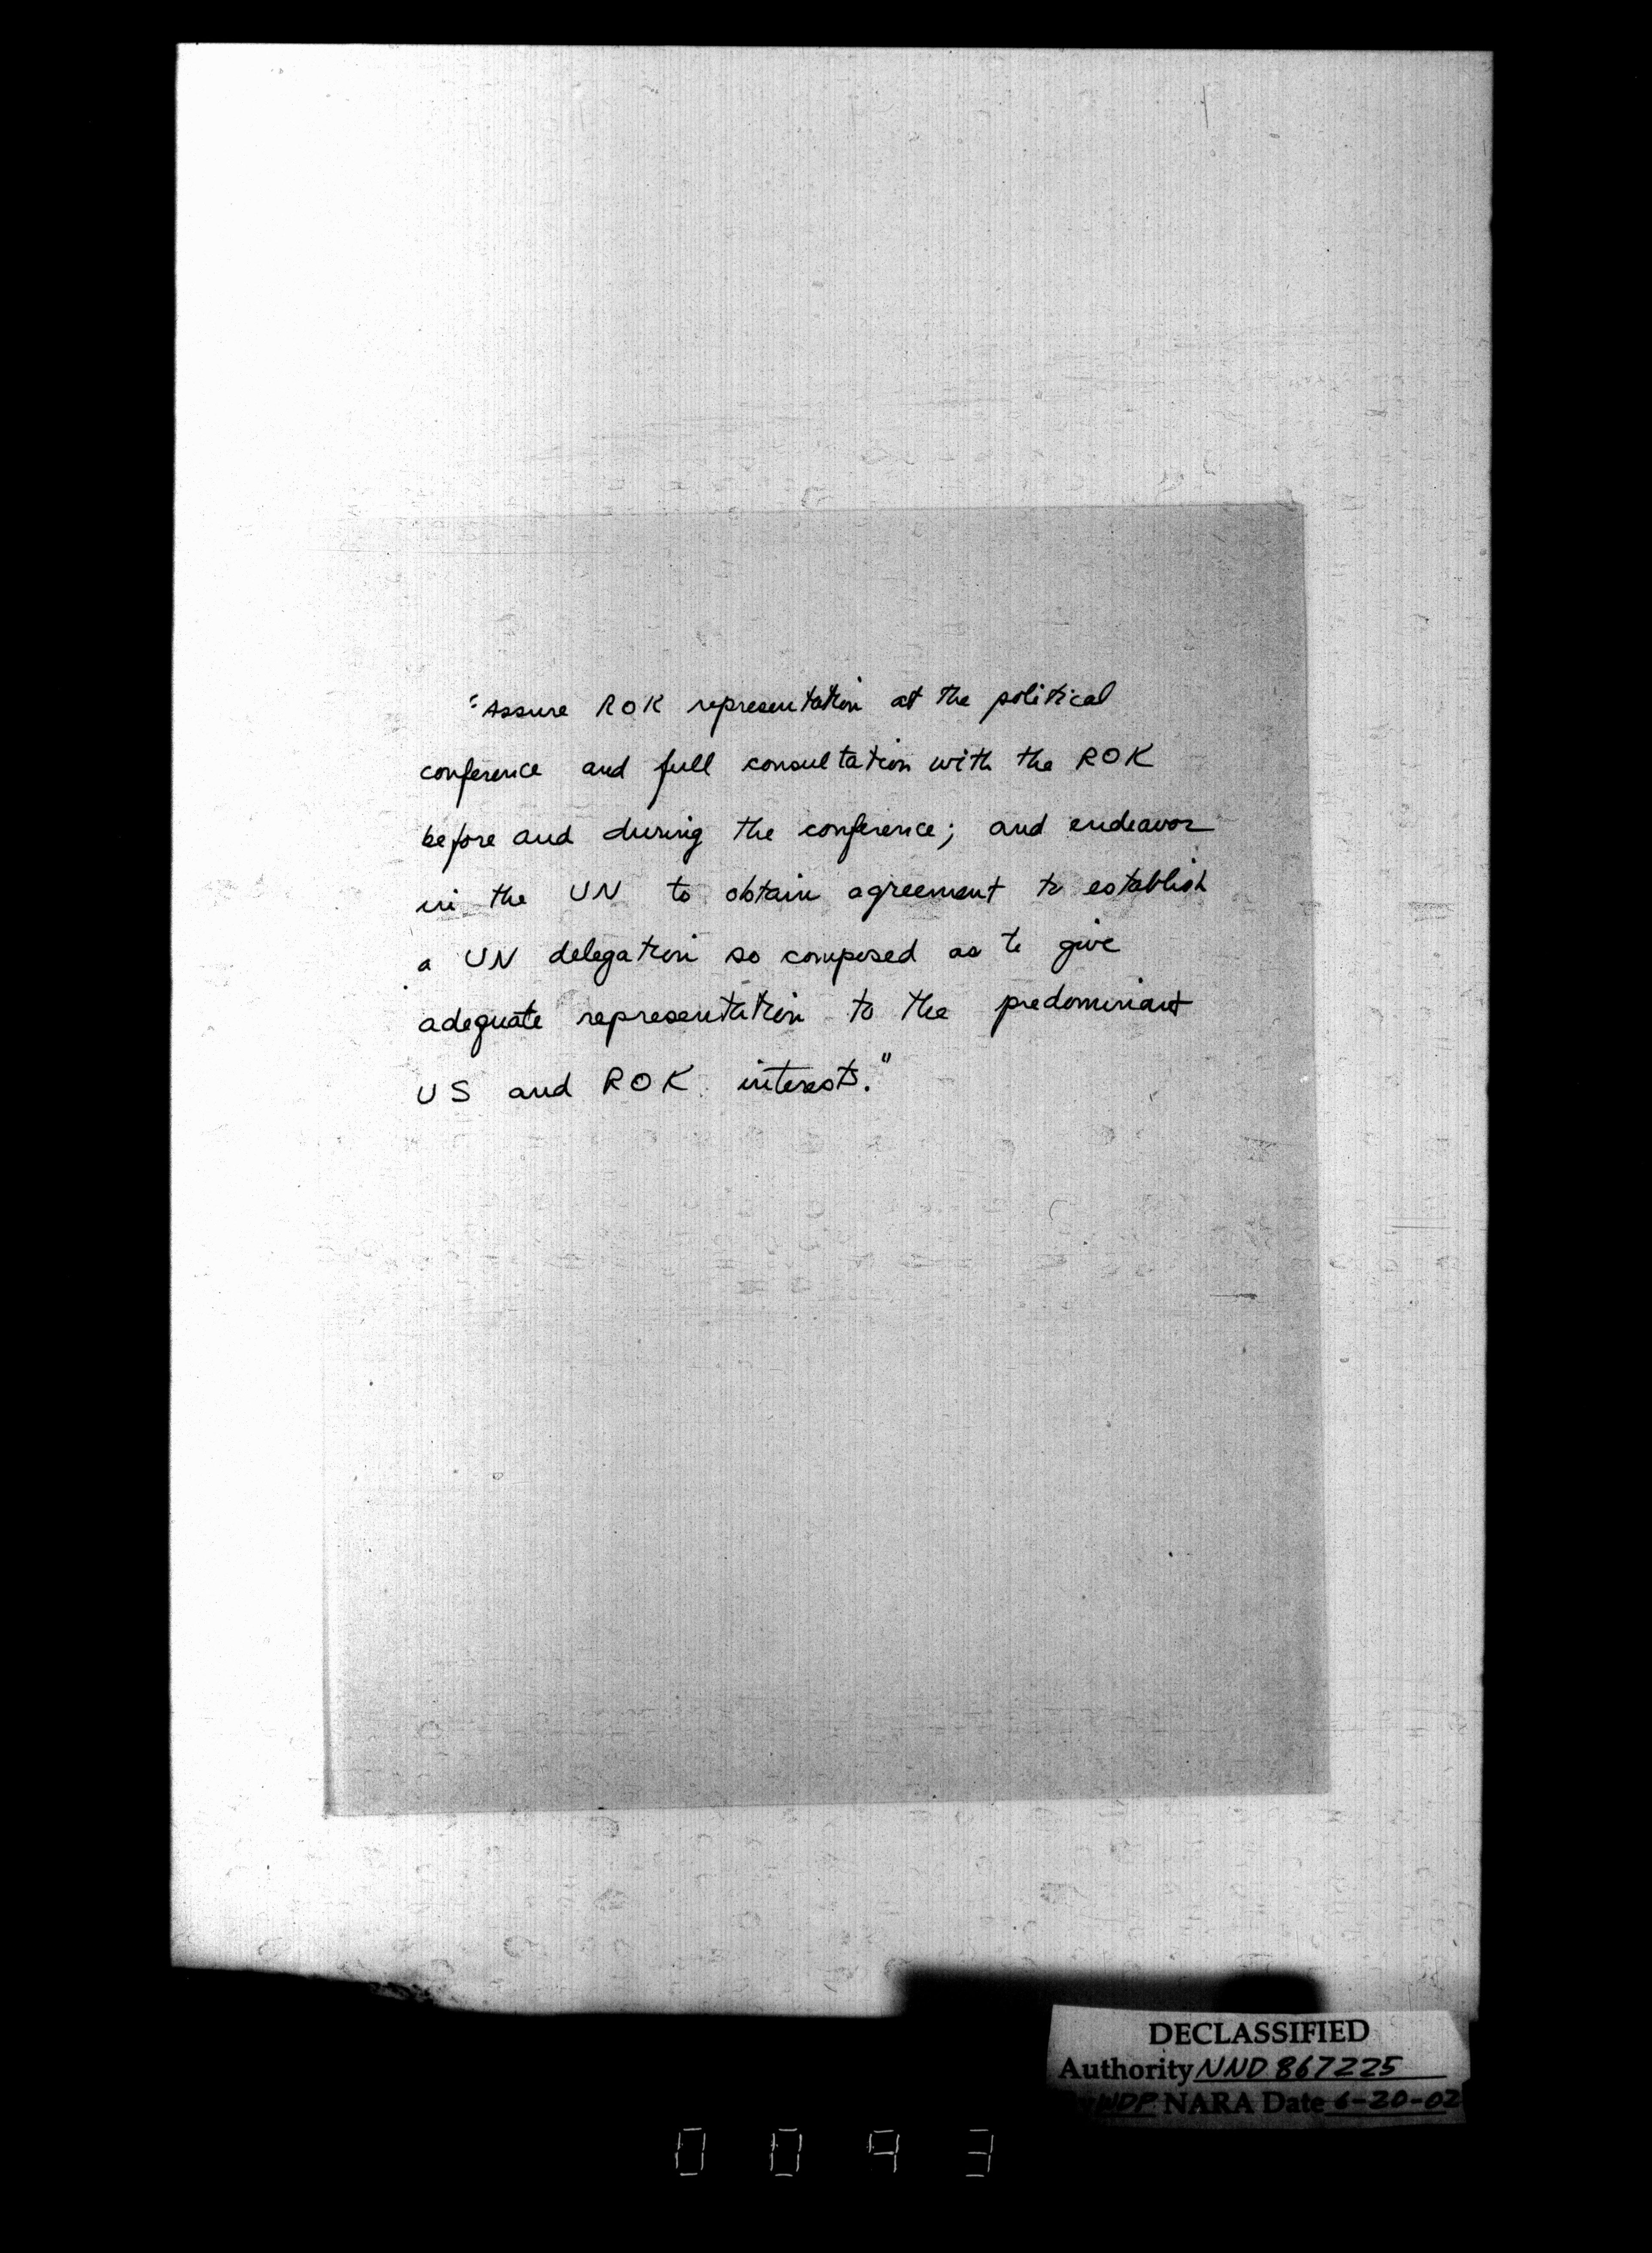 "Assure ROK representation at the political
conference and full consultation with the ROK
before and during the conference; and endeavor
in the UN to obtain agreement to establish
a UN delegation so composed as to give
adequate representation to the predominant
US and ROK interests."
DECLASSIFIED
Authority NND 867225
WDP NARA Date 6-20-02
0093